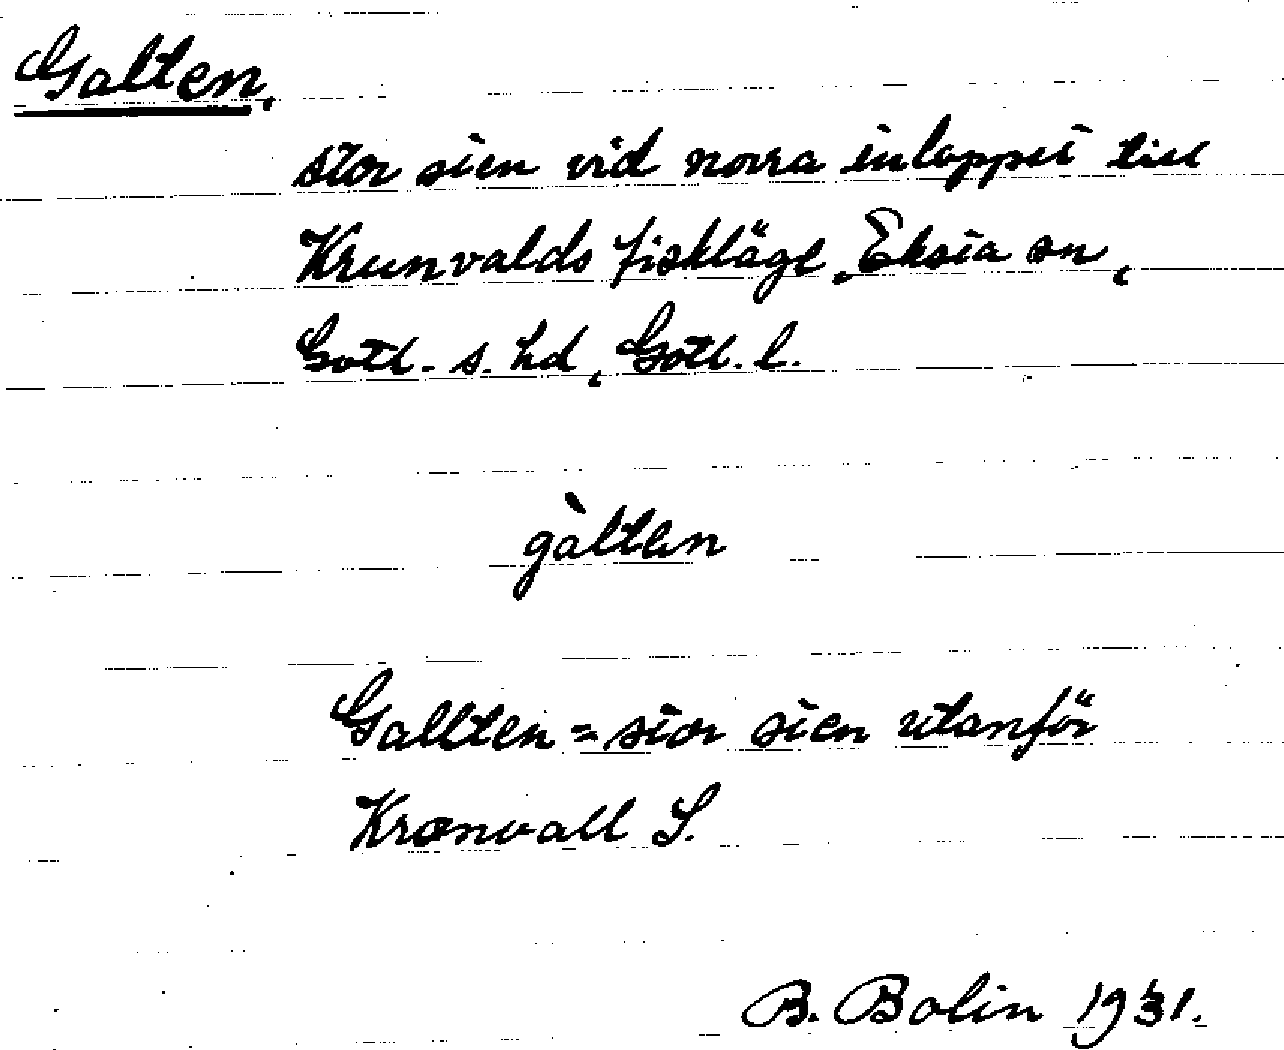 Galten,
stor sten vid norra inloppet till
Krunvalds fiskläge, Eksta sn,
Gotl. s. hd, Gotl. l.
gàlten
Gallten = stor sten utanför
Kronvall S.
B. Bolin 1931.